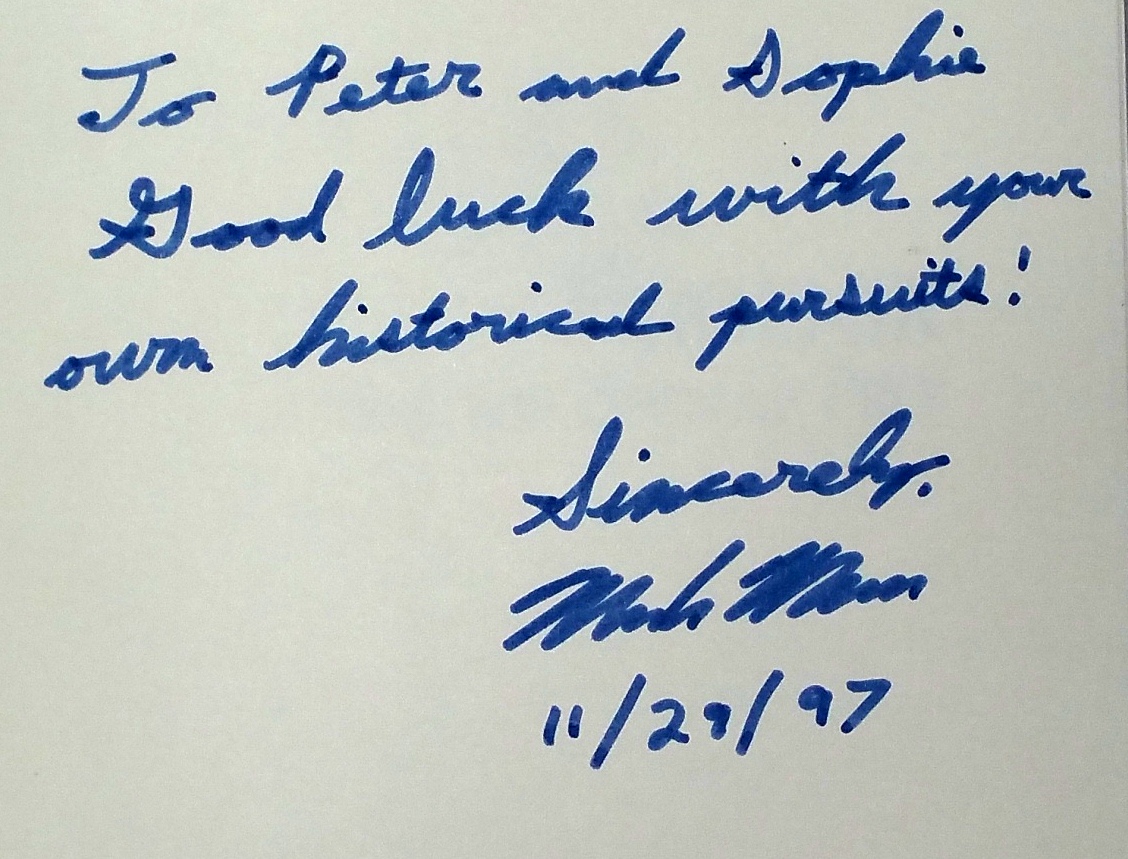 To Peter and Sophie
Good luck with your
own historical pursuits!
Sincerely,
11/29/97